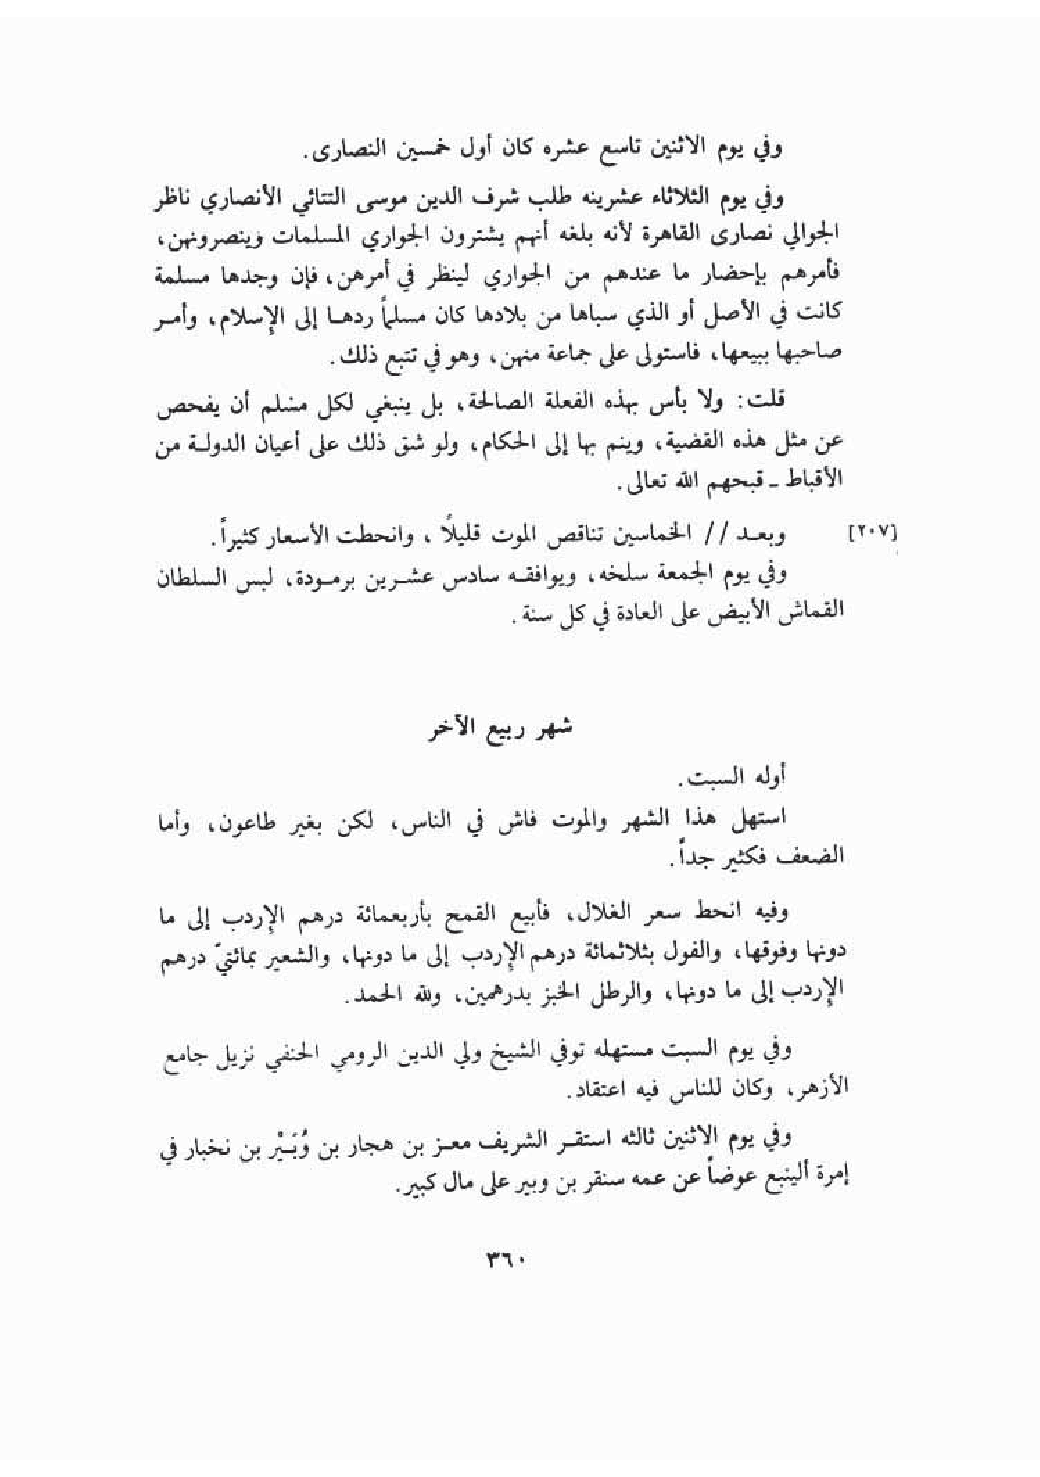 وفي يوم الاثنين تاسع عشره كان أول خمسين النصارى.
وفي يوم الثلاثاء عشرينه طلب شرف الدين موسى التتائي الأنصاري ناظر
الجوالي نصارى القاهرة لأنه بلغه أنهم يشترون الجواري المسلمات وينصرونهن،
فأمرهم بإحضار ما عندهم من الجواري لينظر في أمرهن، فإن وجدها مسلمة
كانت في الأصل أو الذي سباها من بلادها كان مسلماً ردهـا إلى الإسلام، وأمـر
صاحبها ببيعها، فاستولى على جماعة منهن، وهو في تتبع ذلك.
قلت: ولا بأس بهذه الفعلة الصالحة، بل ينبغي لكل مسلم أن يفحص
عن مثل هذه القضية، وينم بها إلى الحكام، ولو شق ذلك على أعيان الدولـة من
الأقباط ـ قبحهم الله تعالى.
[٢٠٧] وبعـد // الخماسين تناقص الموت قليلاً، وانحطت الأسعار كثيراً.
وفي يوم الجمعة سلخه، ويوافقـه سادس عشـرين برمـودة، لبس السلطان
القماش الأبيض على العادة في كل سنة.
شهر ربيع الآخر
أوله السبت.
استهل هذا الشهر والموت فاش في الناس، لكن بغير طاعون، وأما
الضعف فكثير جداً.
وفيه انحط سعر الغلال، فأبيع القمح بأربعمائة درهم الإردب إلى ما
دونها وفوقها، والفول بثلاثمائة درهم الإردب إلى ما دونها، والشعير بمائتيّ درهم
الإردب إلى ما دونها، والرطل الخبز بدرهمين، ولله الحمد.
وفي يوم السبت مستهله توفي الشيخ ولي الدين الرومي الحنفي نزيل جامع
الأزهر، وكان للناس فيه اعتقاد.
وفي يوم الاثنين ثالثه استقـر الشريف معـز بن هجار بن وُبَـيْر بن نخبار في
إمرة ألينبع عوضاً عن عمه سنقر بن وبير على مال كبير.
٣٦٠